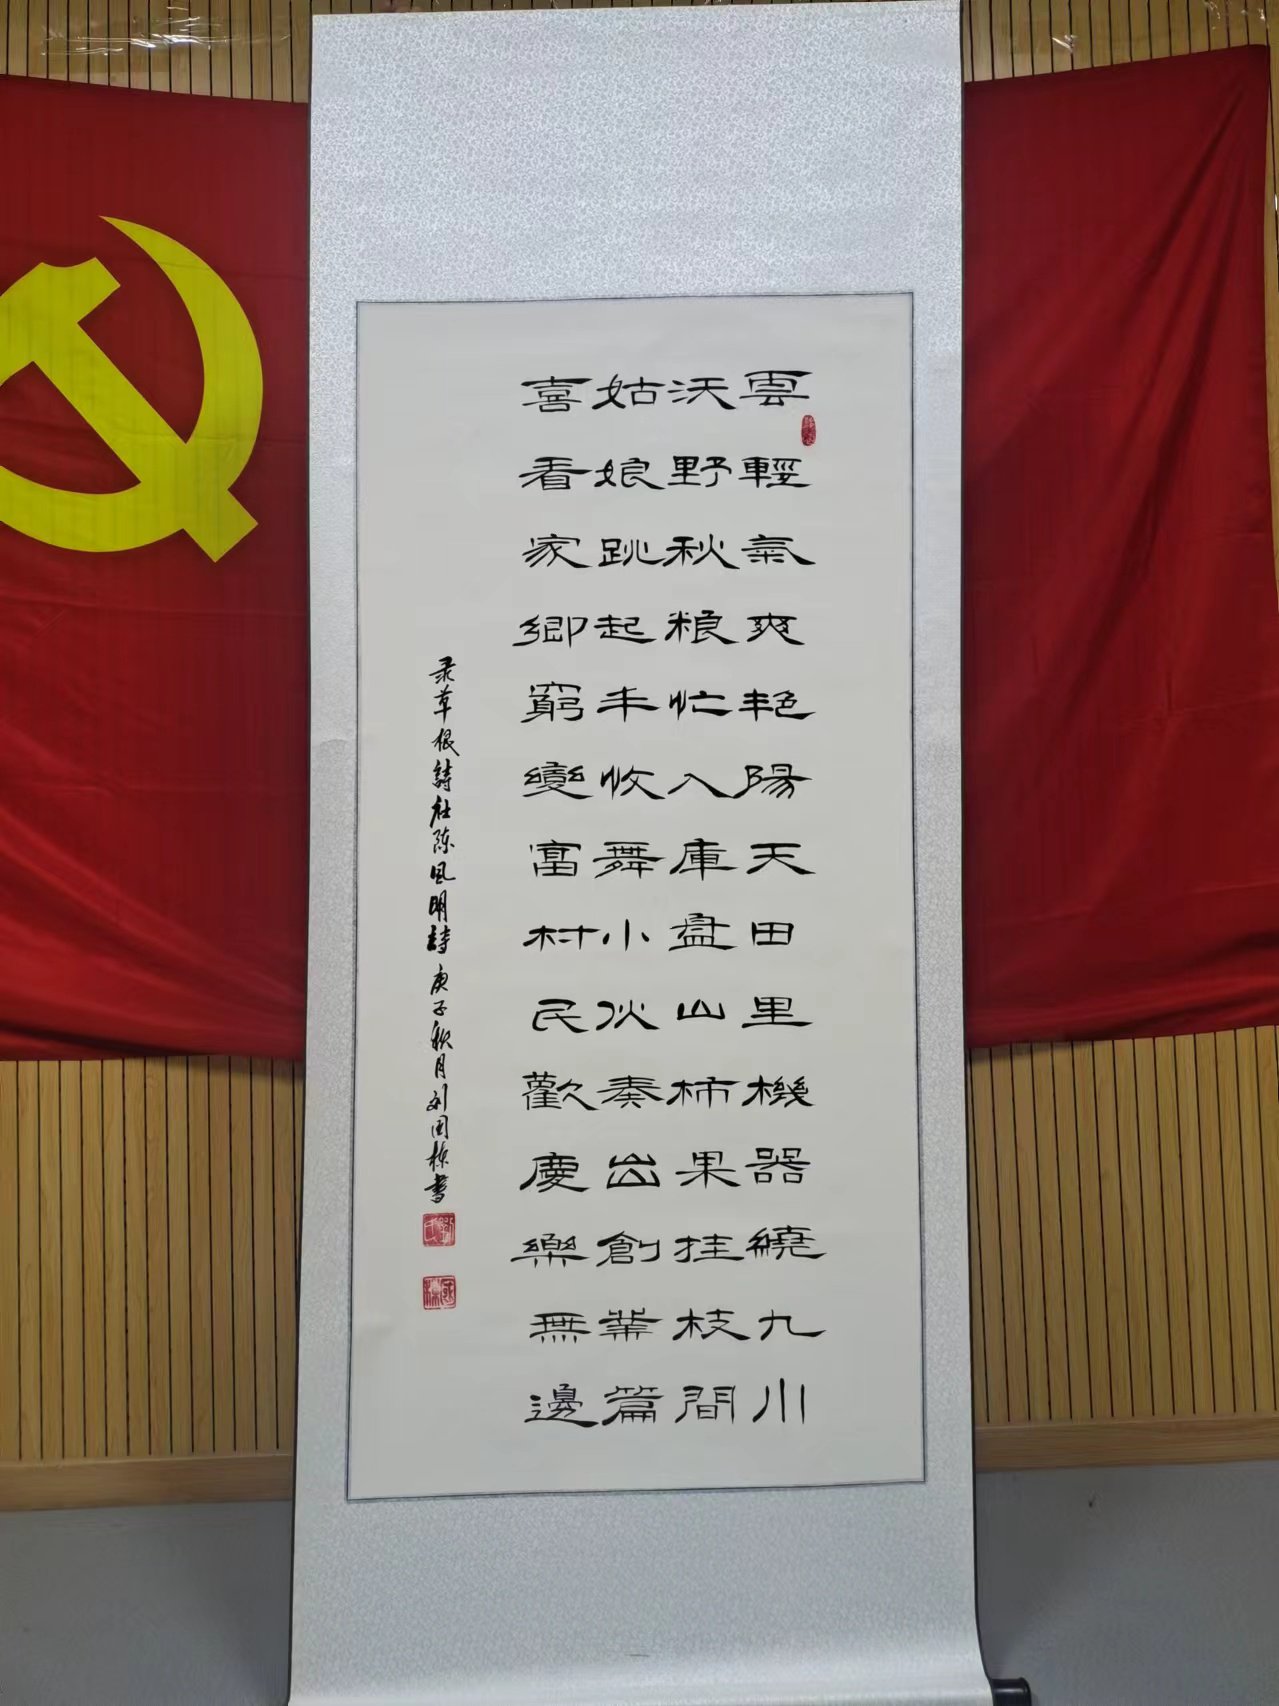 雲輕氣爽艳陽天田里機器繞九川
沃野秋粮忙入庫盘山柿果挂枝間
姑娘跳起丰收舞小伙奏出創業篇
喜看家鄉窮變富村民歡慶樂無邊
录草根詩社陈风明詩庚子秋月刘国栋書